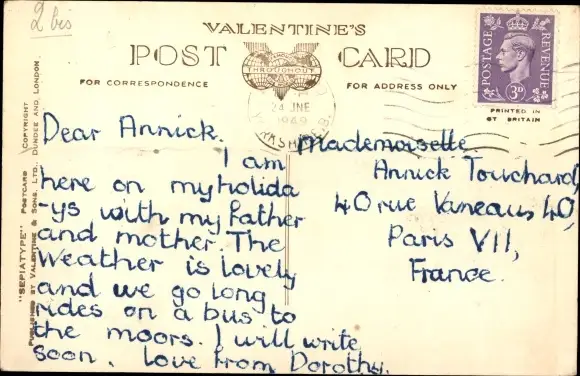 2 bis
VALENTINE'S
POST CARD
THROUGHOUT
FOR CORRESPONDENCE
FOR ADDRESS ONLY
POSTAGE REVENUE
3D
PRINTED IN
GT BRITAIN
24 JNE
1949
"SEPIATYPE" POSTCARD COPYRIGHT
PUBLISHED BY VALENTINE & SONS, LTD. DUNDEE AND LONDON
Dear Annick.
I am
here on my holida
-ys with my father
and mother. The
weather is lovely
and we go long
rides on a bus to
the moors. I will write
soon. Love from Dorothy.
Mademoiselle
Annick Touchard,
40 rue Vaneau, 40,
Paris VII,
France.